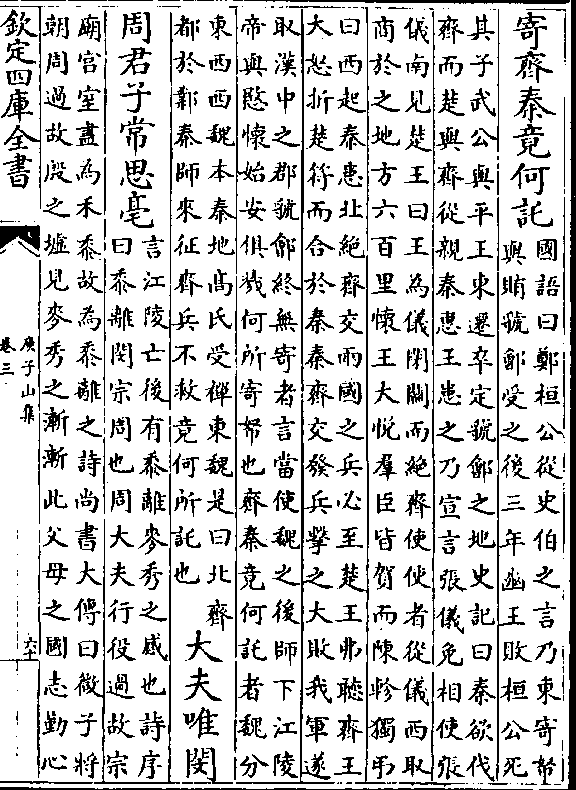 寄齊秦竟何託
國語曰鄭桓公從史伯之言乃東寄帑
與賄虢鄶受之後三年幽王敗桓公死
其子武公與平王東遷卒定虢鄶之地史記曰秦欲伐
齊而楚與齊從親秦惠王患之乃宣言張儀免相使張
儀南見楚王曰王為儀閉關而絕齊使使者從儀西取
商於之地方六百里懷王大悅羣臣皆賀而陳軫獨弔
曰西起秦患北絕齊交兩國之兵必至楚王弗聽齊王
大怒折楚符而合於秦秦齊交發兵擊之大敗我軍遂
取漢中之郡虢鄶終無寄者言當使魏之後師下江陵
帝與愍懷始安俱戮何所寄帑也齊秦竟何託者魏分
東西西魏本秦地高氏受禪東魏是曰北齊
都於鄴秦師來征齊兵不救竟何所託也
大夫唯閔
周君子常思亳
言江陵亡後有黍離麥秀之感也詩序
曰黍離閔宗周也周大夫行役過故宗
廟宮室盡為禾黍故為黍離之詩尚書大傳曰微子將
朝周過故殷之墟見麥秀之漸漸此父母之國志動心
欽定四庫全書
庾子山集
卷三
六十